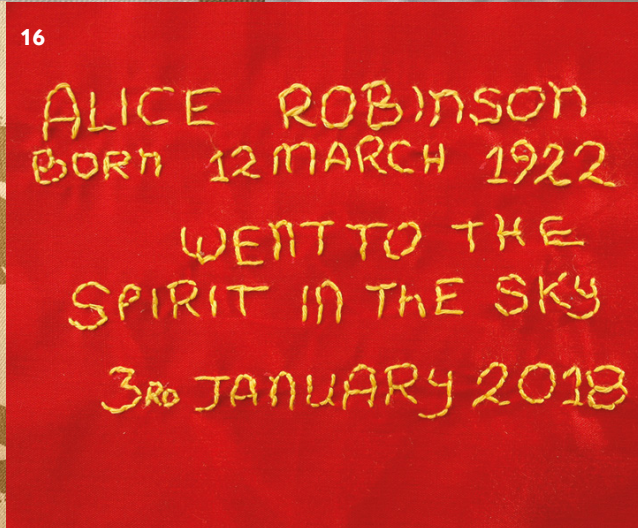 16
ALICE ROBINSON
BORN 12 MARCH 1922
WENT TO THE
SPIRIT IN THE SKY
3RD JANUARY 2018